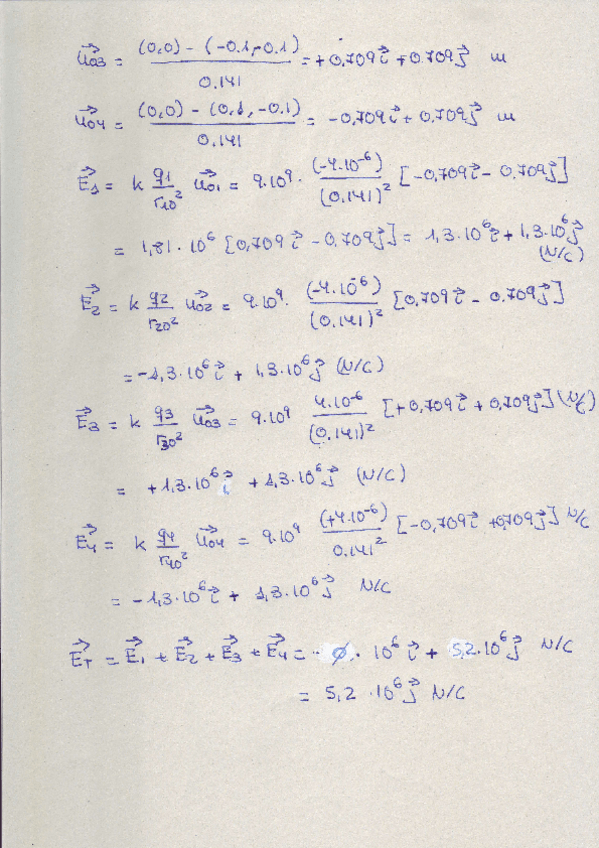 u⃗03 = (0,0) - (-0.1,-0.1) / 0.141 = +0.709 i⃗ + 0.709 j⃗ m
u⃗04 = (0,0) - (0.1, -0.1) / 0.141 = -0,709 i⃗ + 0,709 j⃗ m
E⃗1 = k q1/r10² u⃗01 = 9.10⁹ · (-4.10⁻⁶)/(0.141)² [-0,709 i⃗ - 0.709 j⃗]
= 1,81 · 10⁶ [0,709 i⃗ - 0.709 j⃗] = - 1,3·10⁶ i⃗ + 1,3·10⁶ j⃗ (N/C)
E⃗2 = k q2/r20² u⃗02 = 9.10⁹ · (-4.10⁻⁶)/(0.141)² [0,709 i⃗ - 0.709 j⃗]
= -1,3·10⁶ i⃗ + 1,3·10⁶ j⃗ (N/C)
E⃗3 = k q3/r30² u⃗03 = 9.10⁹ 4.10⁻⁶/(0.141)² [+0,709 i⃗ + 0,709 j⃗] (N/C)
= +1,3·10⁶ i⃗ + 1,3·10⁶ j⃗ (N/C)
E⃗4 = k q4/r40² u⃗04 = 9.10⁹ (+4.10⁻⁶)/0.141² [-0,709 i⃗ + 0,709 j⃗] N/C
= -1,3·10⁶ i⃗ + 1,3·10⁶ j⃗ N/C
E⃗T = E⃗1 + E⃗2 + E⃗3 + E⃗4 = Ø · 10⁶ i⃗ + 5,2·10⁶ j⃗ N/C
= 5,2 · 10⁶ j⃗ N/C